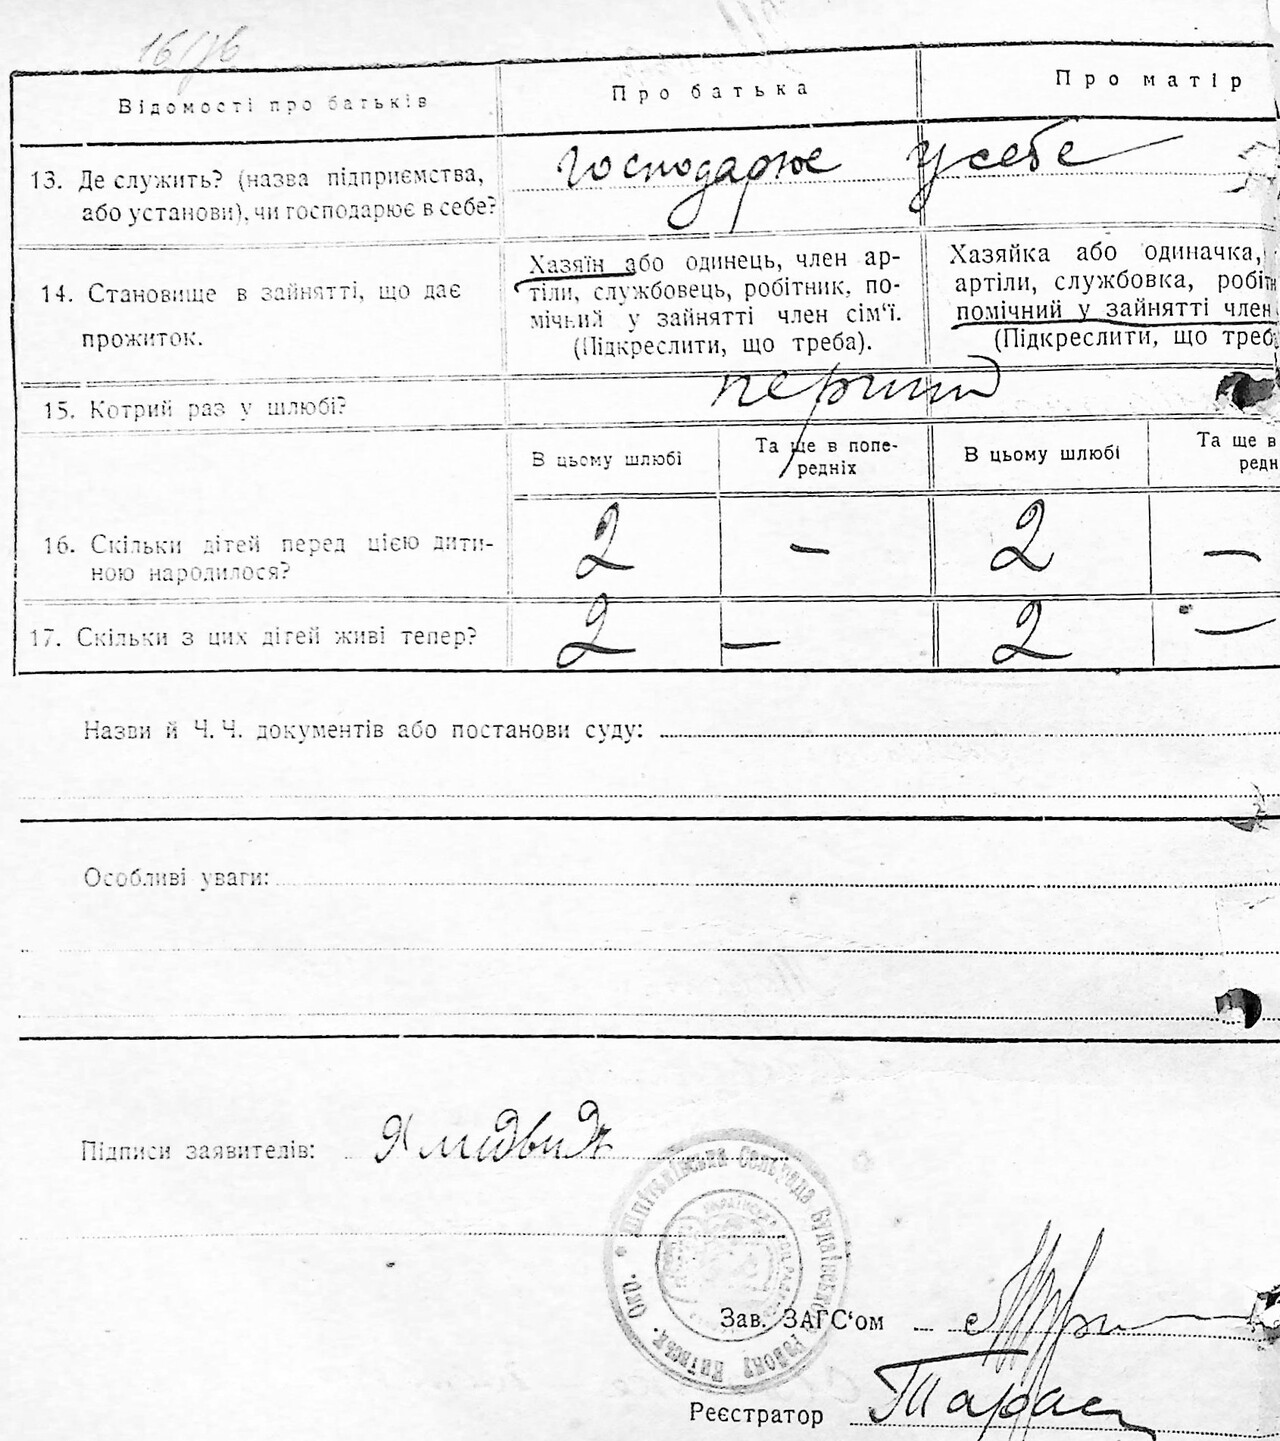 16/76
Відомості про батьків
Про батька
Про матір
13. Де служить? (назва підприємства,
або установи), чи господарює в себе?
господарює у себе
14. Становище в зайнятті, що дає
прожиток.
Хазяїн або одинець, член ар-
тіли, службовець, робітник, по-
мічний у зайнятті член сім'ї.
(Підкреслити, що треба).
Хазяйка або одиначка,
артіли, службовка, робітн
помічний у зайнятті член
(Підкреслити, що треб
15. Котрий раз у шлюбі?
перший
В цьому шлюбі
Та ще в попе-
редніх
В цьому шлюбі
Та ще в
редн
16. Скільки дітей перед цією дити-
ною народилося?
2 — 2 —
17. Скільки з цих дітей живі тепер?
2 — 2 —
Назви й Ч. Ч. документів або постанови суду:
Особливі уваги:
Підписи заявителів:
Сельрада Будаївського району Київськ. Окр.
Зав. ЗАГС'ом
Реєстратор Тарас